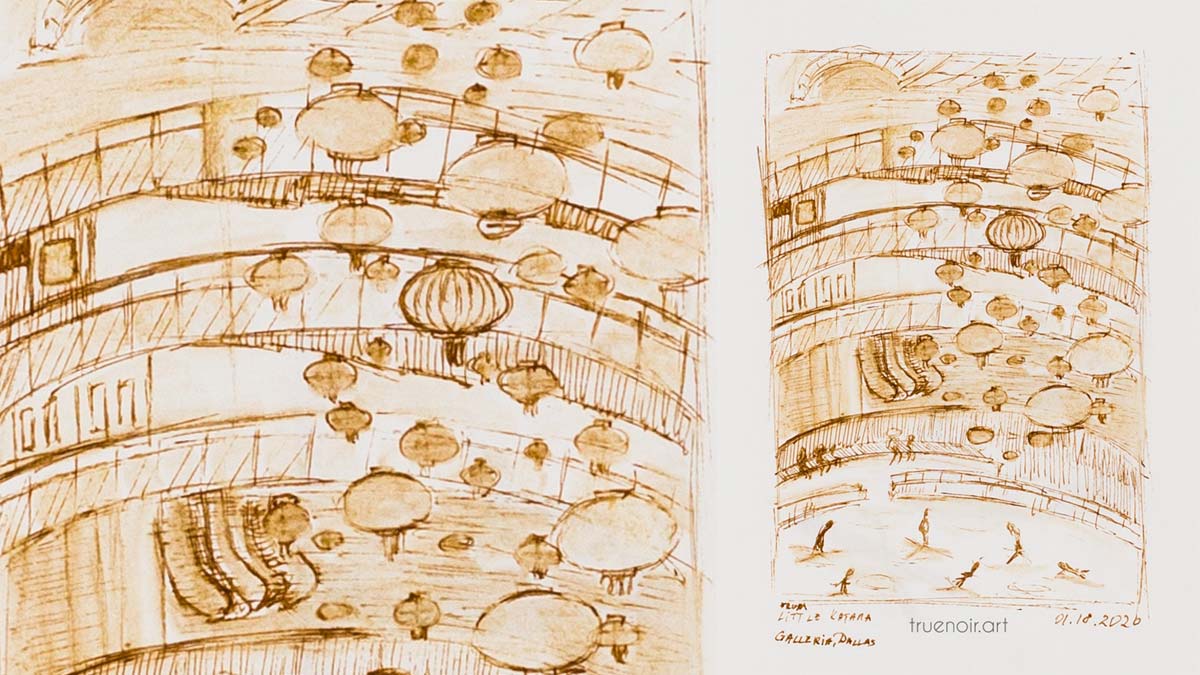 FROM
LITTLE KATANA
GALLERIA, DALLAS
truenoir.art
01.18.2026